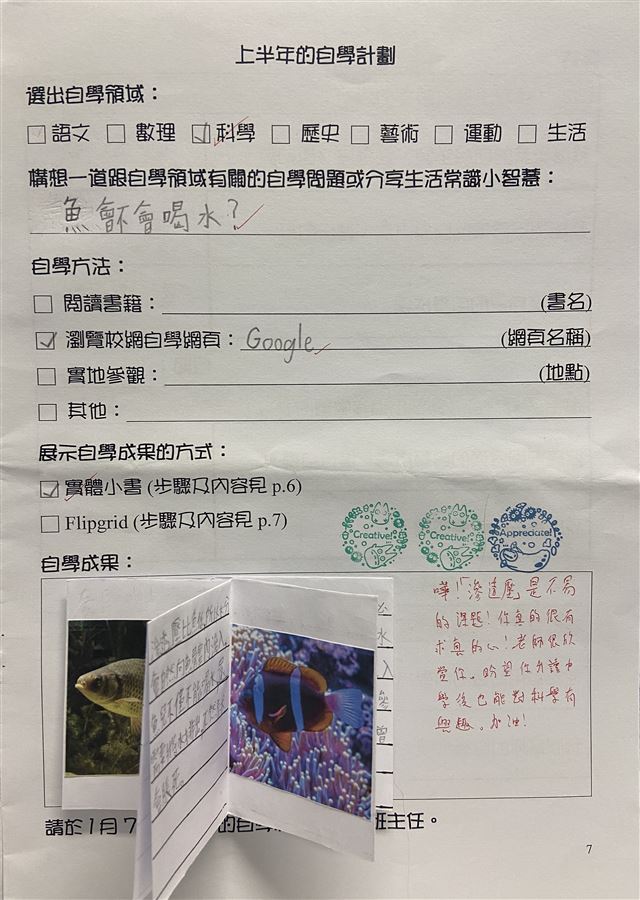 上半年的自學計劃
選出自學領域：
語文 數理 科學 歷史 藝術 運動 生活
構想一道跟自學領域有關的自學問題或分享生活常識小智慧：
魚會不會喝水？
自學方法：
閱讀書籍： (書名)
瀏覽校網自學網頁： Google (網頁名稱)
實地參觀： (地點)
其他：
展示自學成果的方式：
實體小書 (步驟及內容見 p.6)
Flipgrid (步驟及內容見 p.7)
Creative! Creative! Appreciate!
自學成果：
嘩！「滲透壓」是不易
的課題！你真的很有
求真的心！老師很欣
賞你。盼望你升讀中
學後也能對科學有
興趣。加油！
水
入
參
曾
請於1月7 的自學 班主任。
7